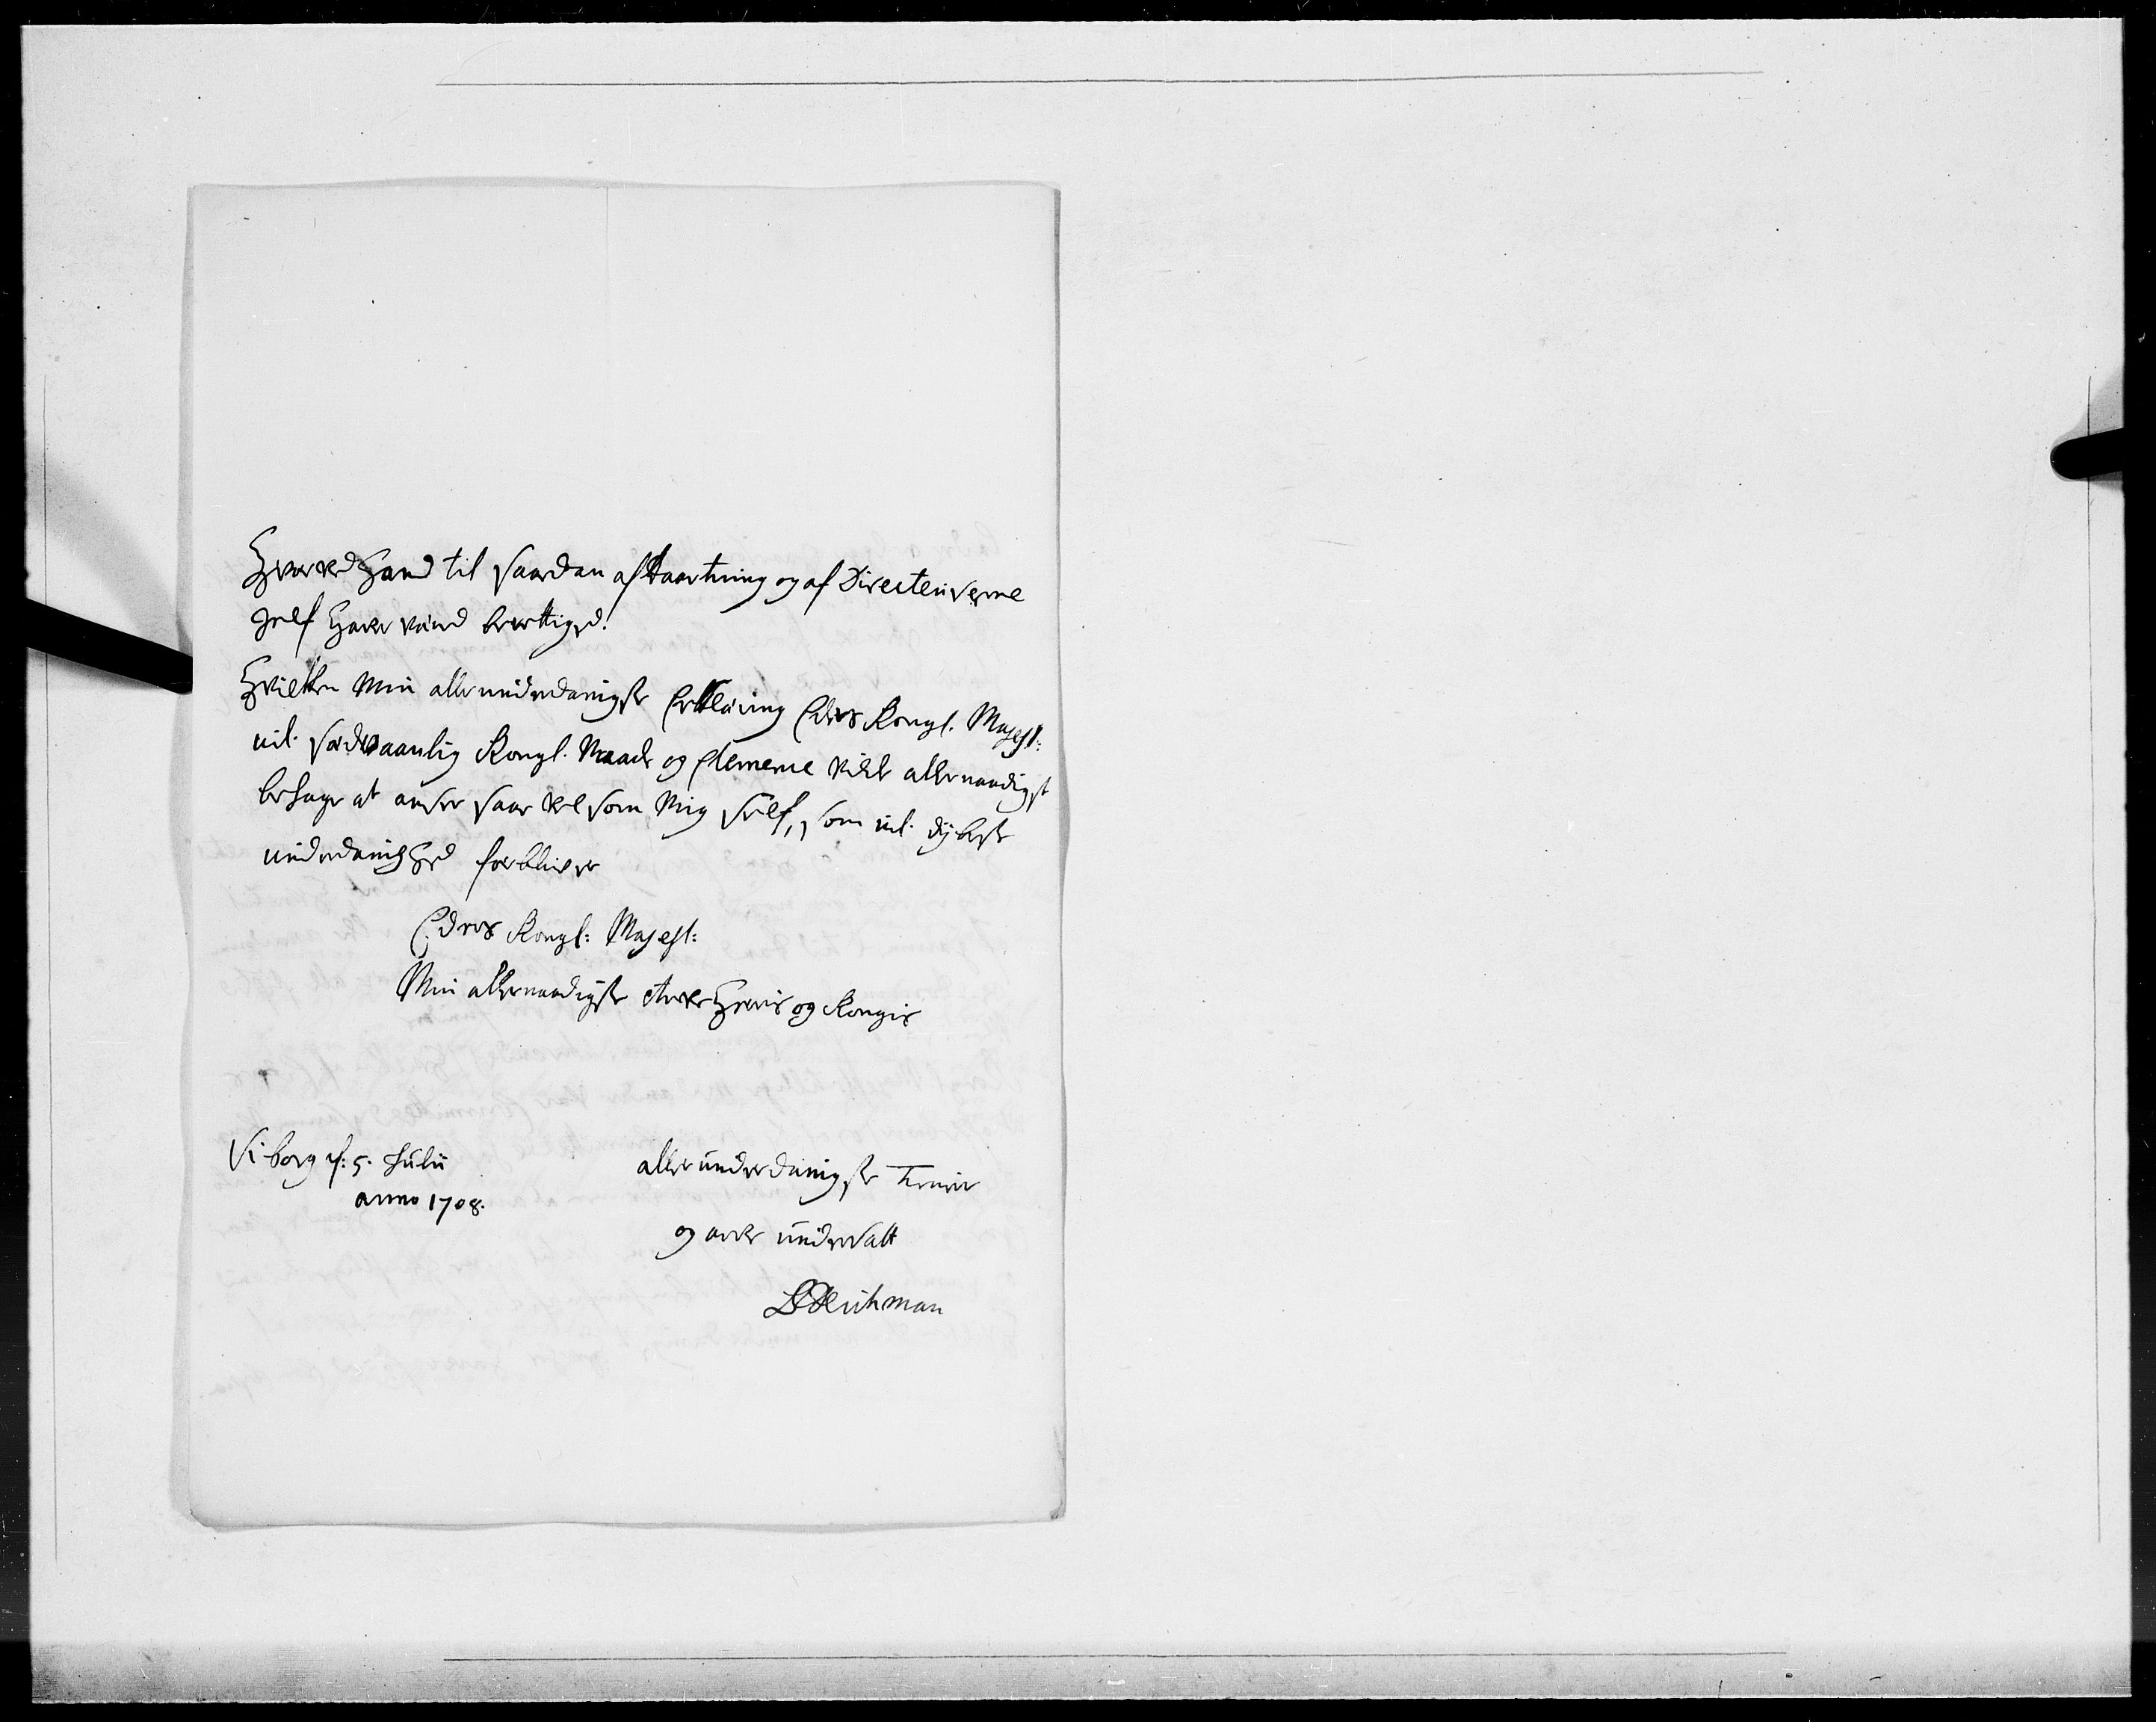 Hvorved Hand til saadan afkaartning og af Directeuverne
self Hawer vaared berettiged.
Hvilken Min allerunderdanigste Erklæring Eders Kongl. Mayest:
vil. sædvaanlig Kongl. Naade og Clemence vilde allernaadigst
behage at ansee saa vel som Mig self, som vil. dybeste
underdanighed forbliver
Eders Kongl: Mayest:
Min allernaadigste Arve Herris og Kongis
Viborg d: 5. Julii
anno 1708.
allerunderdanigste troeste
og arve undersatt
Deichman